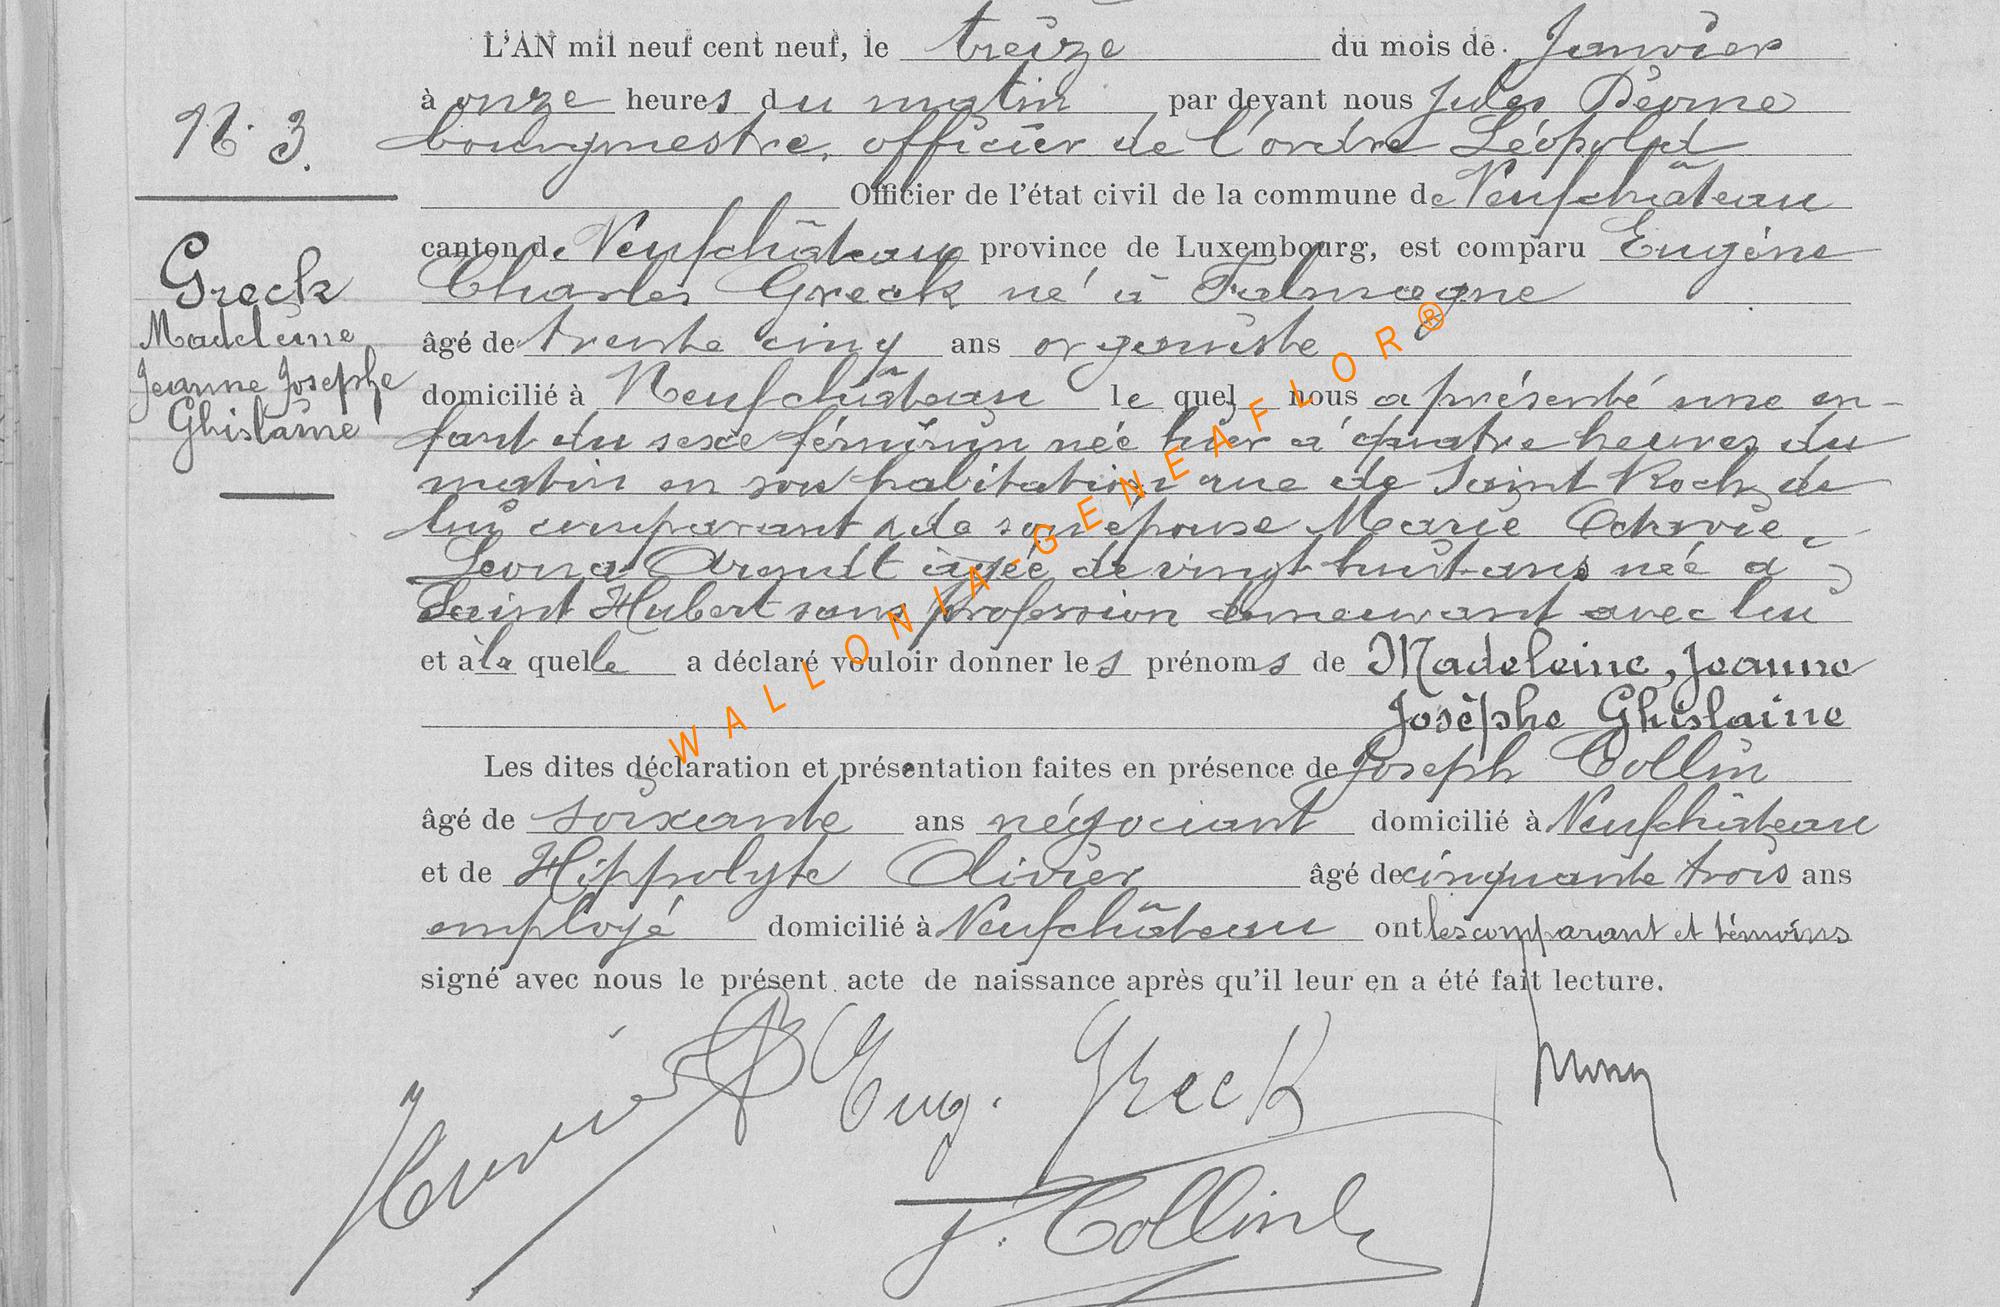 L'AN mil neuf cent neuf, le treize du mois de Janvier
à onze heures du matin par devant nous Jules
N. 3.
bourgmestre, officier de l'ordre Léopold
Officier de l'état civil de la commune de Neufchâteau
canton de Neufchâteau province de Luxembourg, est comparu Eugène
Greck
Madeleine
Jeanne Josephe
Ghislaine
Charles Greck né à Falmagne
âgé de trente cinq ans organiste
domicilié à Neufchâteau le quel nous a présenté une en-
fant du sexe féminin née hier à quatre heures du
matin en son habitation rue de Saint Roch, de
lui comparant & de son épouse Marie Octavie
Leona âgée de vingt huit ans née à
Saint Hubert sans profession demeurant avec lui
et à la quelle a déclaré vouloir donner les prénoms de Madeleine, Jeanne
Josèphe Ghislaine
Les dites déclaration et présentation faites en présence de Joseph Collin
âgé de soixante ans négociant domicilié à Neufchâteau
et de Hippolyte Olivier âgé de cinquante trois ans
employé domicilié à Neufchâteau ont les comparant et témoins
signé avec nous le présent acte de naissance après qu'il leur en a été fait lecture.
Eug. Greck
J. Collin
WALLONIA-GENEAFLOR®